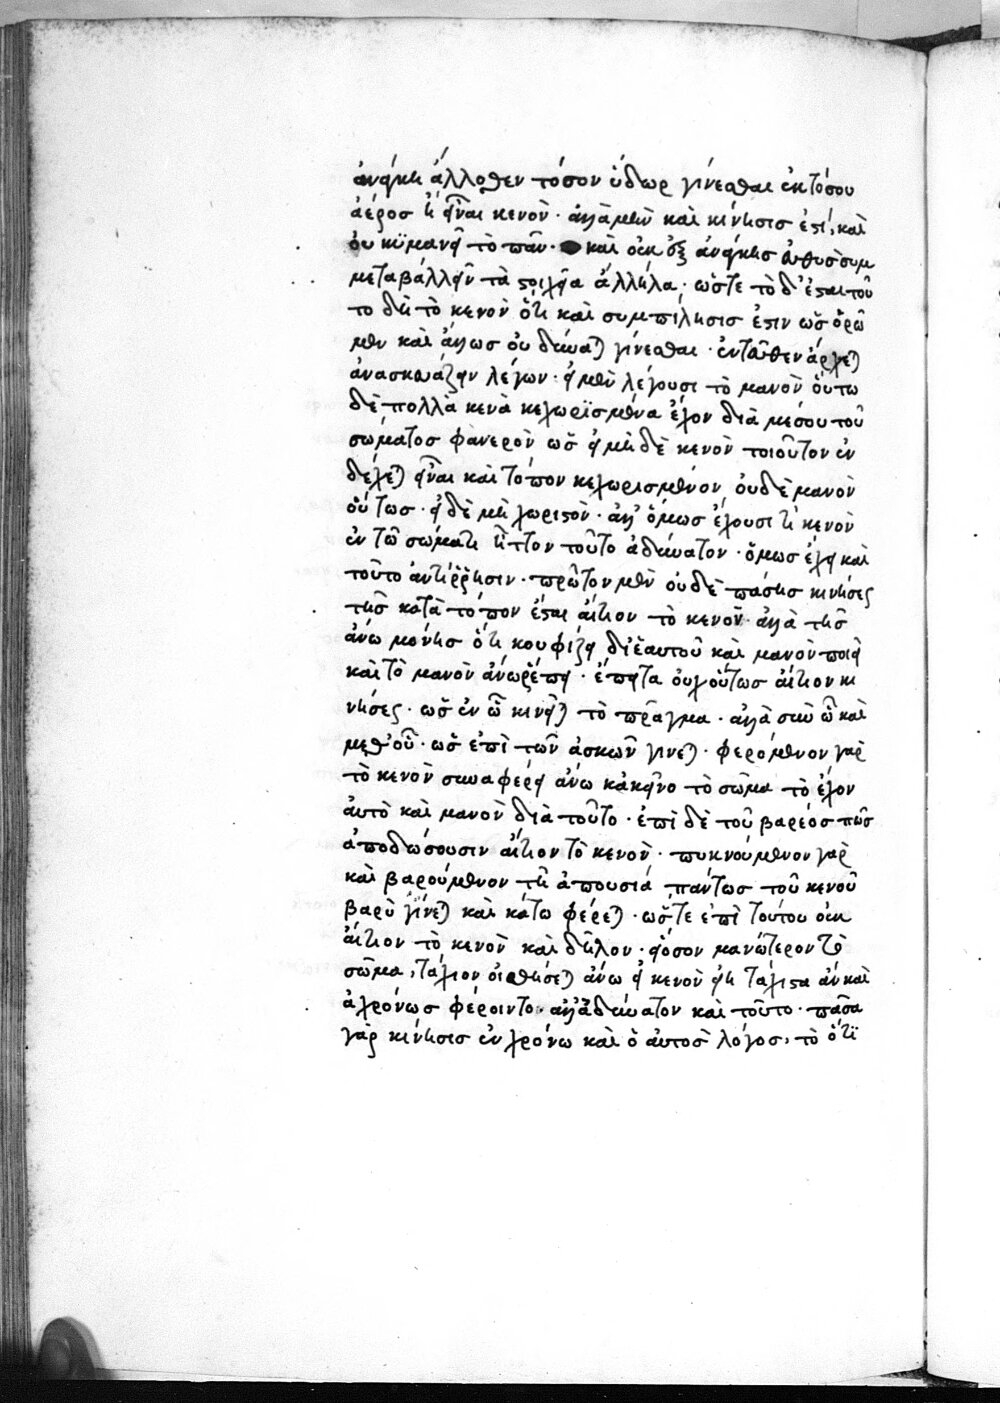 ἀνάγκη ἄλλοθεν τόσον ὕδωρ γίνεσθαι ἐκ τόσου
ἀέρος ἢ εἶναι κενὸν· ἀλλὰ μὴν καὶ κίνησις ἐστὶ, καὶ
οὐ κυμανεῖ τὸ πᾶν· καὶ οὐκ ἐξ ἀνάγκης εὐθὺς συμ
μεταβάλλειν τὰ στοιχεῖα ἄλληλα· ὥστε τὸ δ' ἔσται τοῦ
το δὴ τὸ κενὸν ὅτι καὶ συμπίλησις ἐστὶν ὡς ὁρῶ
μεν καὶ ἄλλως οὐ δύναται γίνεσθαι· ἐντεῦθεν ἄρχεται
ἀνασκευάζειν λέγων· εἰ μὲν λέγουσι τὸ μανὸν οὕτω
δὲ πολλὰ κενὰ κεχωρισμένα ἔχον διὰ μέσου τοῦ
σώματος φανερὸν ὡς εἰ μὴ δὲ κενὸν τοιοῦτον ἐν
δέχεται εἶναι καὶ τόπον κεχωρισμένον, οὐδὲ μανὸν
οὕτως· εἰ δὲ μὴ χωριστὸν· ἀλλ' ὅμως ἔχουσί τι κενὸν
ἐν τῶ σώματι ἧττον τοῦτο ἀδύνατον· ὅμως ἔχει καὶ
τοῦτο ἀντίρρησιν· πρῶτον μὲν οὐδὲ πάσης κινήσεως
τῆς κατὰ τόπον ἔσται αἴτιον τὸ κενὸν· ἀλλὰ τῆς
ἄνω μόνης ὅτι κουφίζει δι' ἑαυτοῦ καὶ μανὸν ποιεῖ
καὶ τὸ μανὸν ἄνω ῥέπει· ἔπειτα οὐχ οὕτως αἴτιον κι
νήσεως· ὡς ἐν ὧ κινεῖται τὸ πρᾶγμα· ἀλλὰ σὺν ὧ καὶ
μεθ' οὗ· ὡς ἐπὶ τῶν ἀσκῶν γίνεται· φερόμενον γὰρ
τὸ κενὸν συναφέρει ἄνω κἀκεῖνο τὸ σῶμα τὸ ἔχον
αὐτὸ καὶ μανὸν διὰ τοῦτο· ἐπὶ δὲ τοῦ βαρέος πῶς
ἀποδώσουσιν αἴτιον τὸ κενὸν· πυκνούμενον γὰρ
καὶ βαρούμενον τῆ ἀπουσία πάντως τοῦ κενοῦ
βαρὺ γίνεται καὶ κάτω φέρεται· ὥστε ἐπὶ τούτου οὐκ
αἴτιον τὸ κενὸν καὶ δῆλον· εἰ ὅσον μανώτερον τὸ
σῶμα, τάχιον οἰσθήσεται ἄνω εἰ κενὸν εἴη τάχιστα ἂν καὶ
ἀχρόνως φέροιντο· ἀλλ' ἀδύνατον καὶ τοῦτο· πᾶσα
γὰρ κίνησις ἐν χρόνω καὶ ὁ αὐτὸς λόγος, τὸ ὅτι